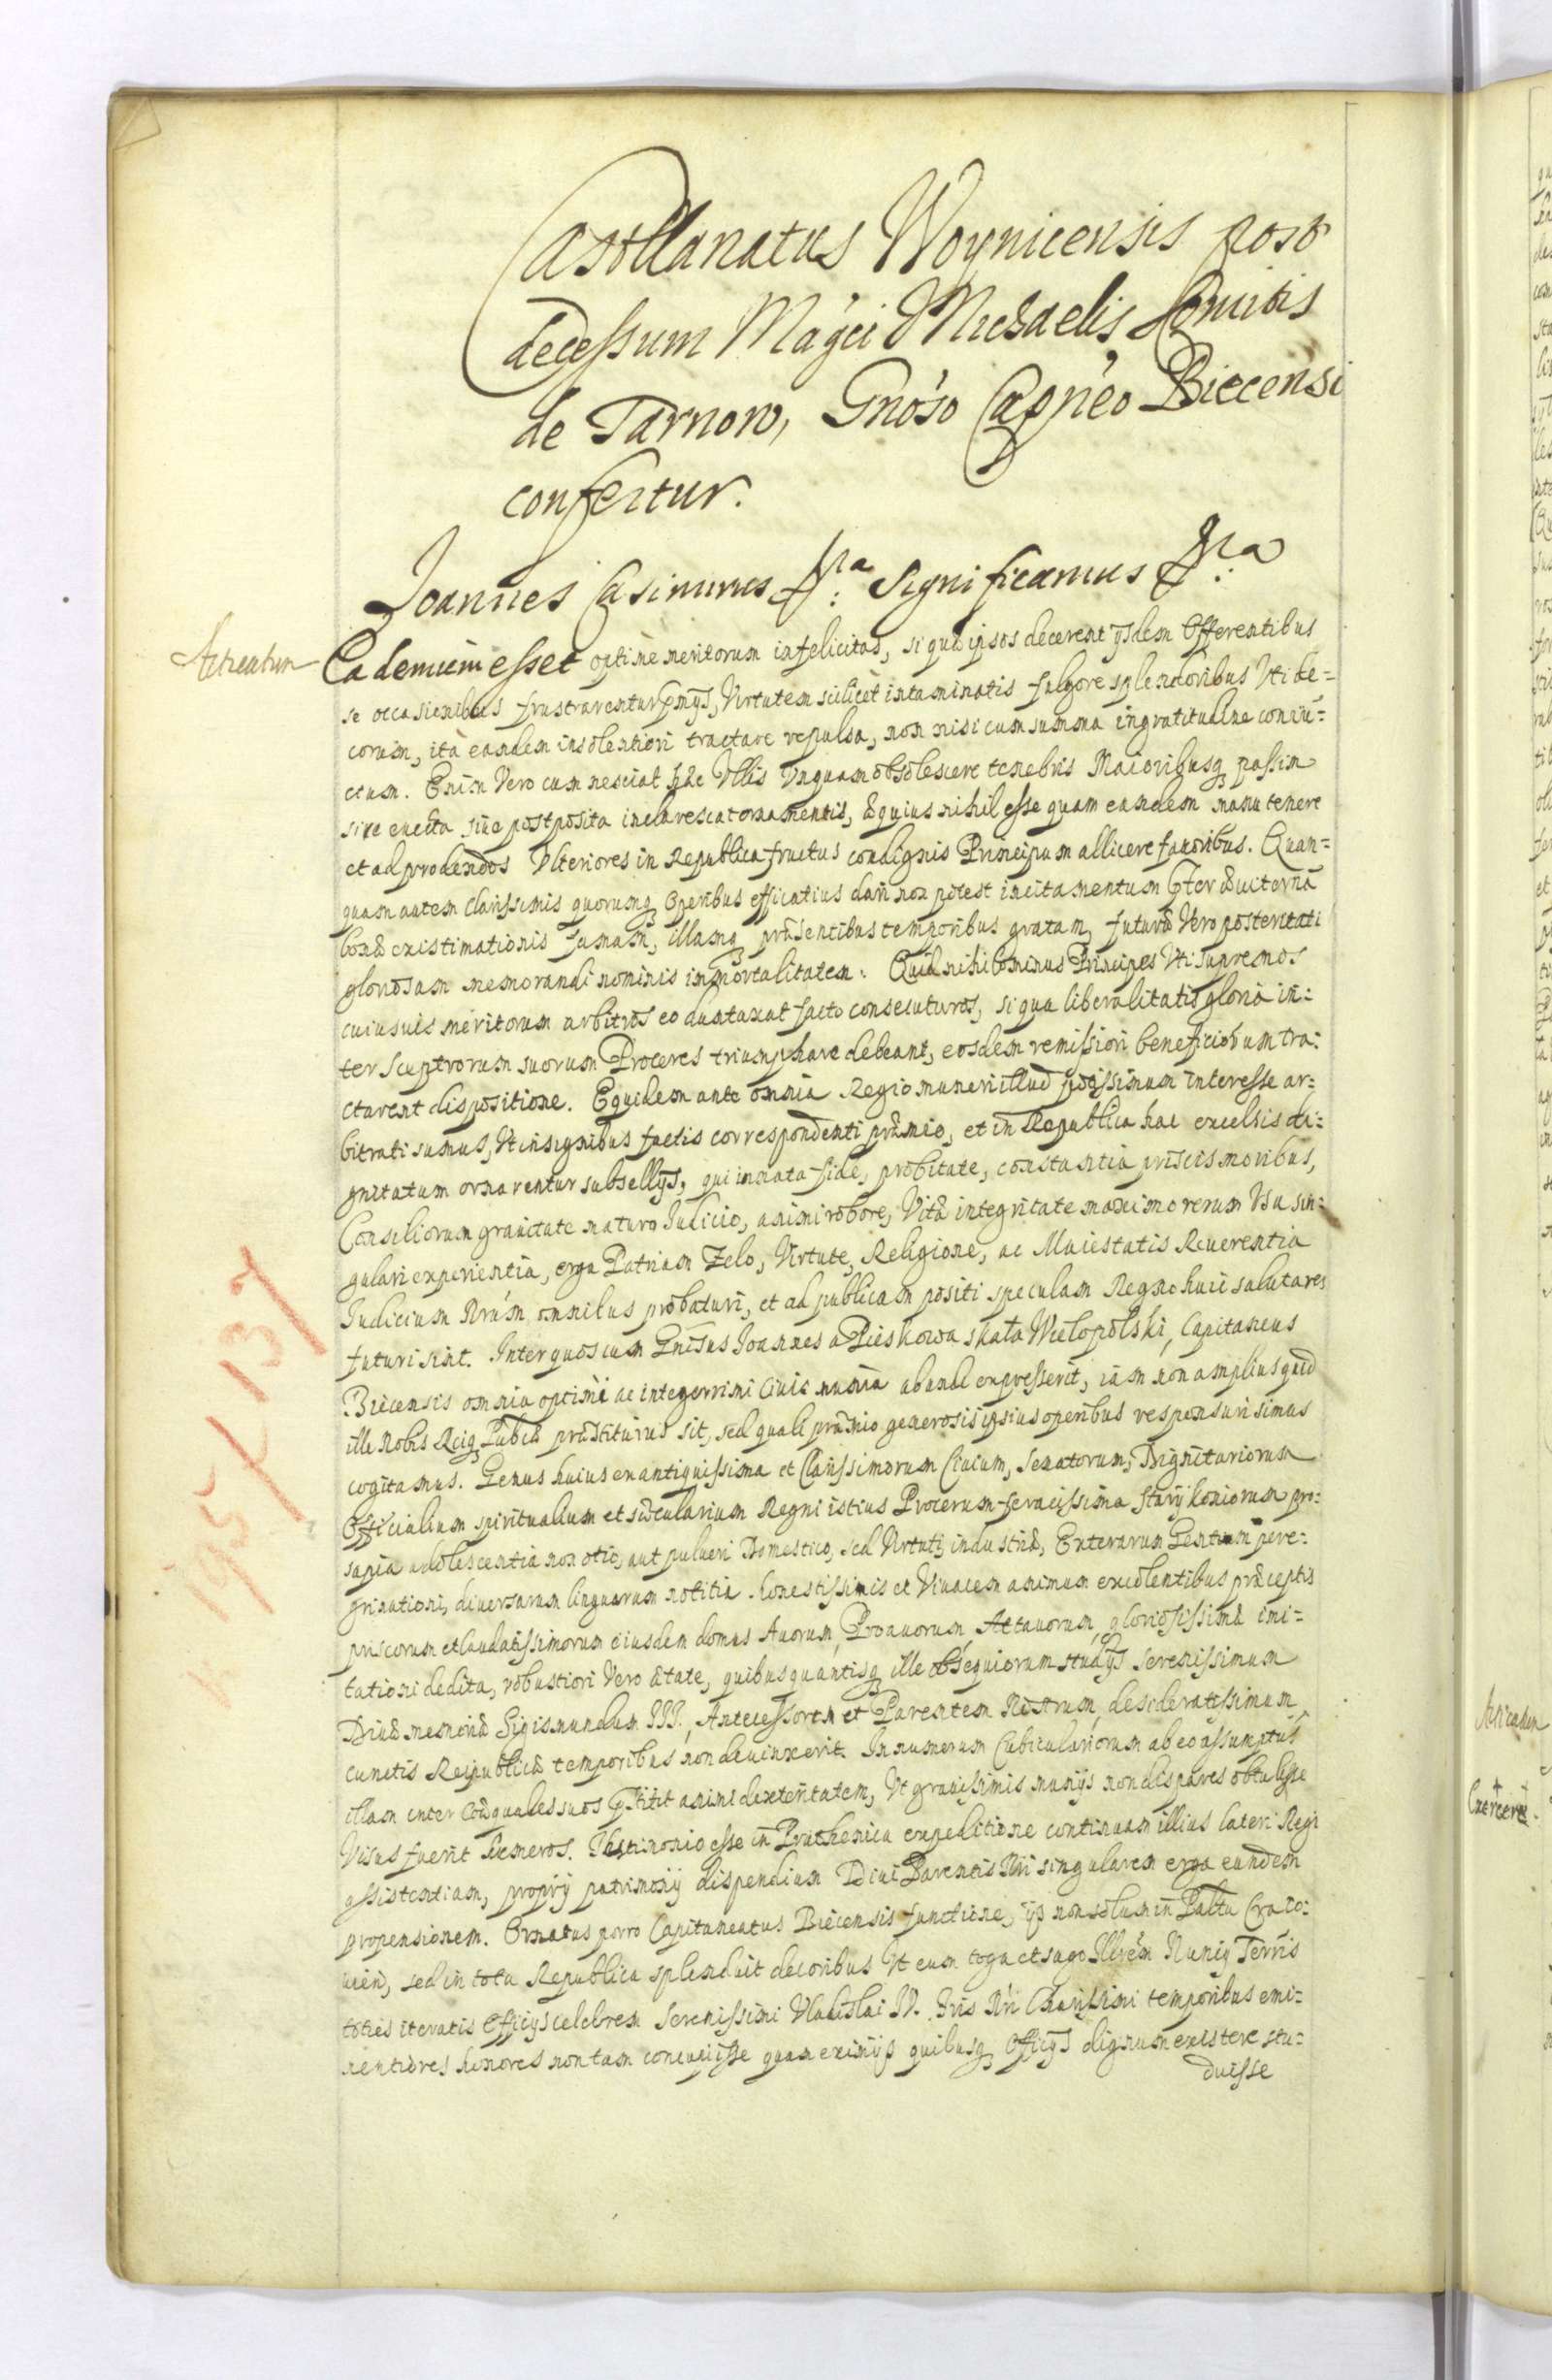 Castellanatus Woynicensis post
decessum Mag'ci Michaelis Comitis
de Tarnow, Gnoso Capneo Biecensi
confertur.
Joannes Casimirus &ra: Significamus &ra:
Ea demum esset optime meritorum infelicitas, si quib ipsos decerent ijsdem Offerentibus
se occasionibus frustrarentur pmijs, Virtutem scilicet intaminatis fulgore splendoribus Vti de=
coram, ità eandem insolentiori tractare repulsa, non nisi cum summa ingratitudine coniu=
ctum. Enim Vero cum nesciat hæc Vllis Vnquam obsolescere tenebris Maioribusq passim
siue euecta siue postposita inclarescat ornamentis, æquius nihil esse quam eandem manu tenere
et ad prodendos Vlteriores in Republica fructus condignis Principum allicere fauoribus. Quan=
quam autem clarissimis quorumq Operibus efficatius dari non potest incitamentum pter æuiternã
bonæ existimationis famam, illamq præsentibus temporibus gratam, futuræ Vero posteritati
gloriosam memorandi nominis immortalitatem. Quid nihilominus Principes Vti supremos
cuiusuis meritorum arbitros eo duntaxat facto consecuturos, si qua liberalitatis gloria in=
ter Sceptrorum suorum Proceres triumphare debeant, eosdem remissiori beneficiorum tra=
ctarent dispositione. Equidem ante omnia Regio muneri illud potissimum interesse ar=
bitrati sumus, Vt insignibus factis correspondenti præmio, et in Republica hac excelsis di=
gnitatum ornarentur subsellijs, qui innata fide, probitate, constantia priscis moribus,
Consiliorum grauitate maturo Judicio, animi robore, Vitæ integritate maximo rerum Vsu sin=
gulari experientia, erga Patriam Zelo, Virtute, Religione, ac Maiestatis Reuerentia
Judicium Nrum omnibus probaturi, et ad publicam positi speculam Regno huic salutares
futuri sint. Inter quos cum Gnsus Joannes a Pieskowa skała Wielopolski, Capitaneus
Biecensis omnia optimi ac integerrimi Ciuis munia abunde expresserit, iam non amplius quid
ille Nobis Reiq Pubcæ præstiturus sit, sed quali præmio generosis ipsius operibus responsuri simus
cogitamus. Genus huius ex antiquissima et Clarissimorum Ciuium, Senatorum, Dignitariorum
Officialium spiritualium et sæcularium Regni istius Procerum feracissima Starykoniorum pro=
sapia adolescentia non otio, aut pulueri Domestico, sed Virtuti, industriæ, Exterarum Gentium pere=
grinationi, diuersarum linguarum notitiæ. honestissimis et Viuacem animum excolentibus præceptis
priscorum et laudatissimorum eiusdem domus Auorum, Proauorum, Attauorum, gloriosissimæ imi=
tationi dedita, robustiori Vero ætate, quibus quantisq ille obsequiorum studijs Serenissimum
Diuæ memoriæ Sigismundum III. Antecessorem et Parentem Nostrum, desideratissimum,
cunctis Reipublicæ temporibus non deuinxerit. In numerum Cubiculariorum ab eo assumptus
illam inter Coæquales suos pstitit animi dexteritatem, Vt grauissimis munijs non dispares obtulisse
Visus fuerit humeros. Testimonio esse in Pruthenica expeditione continuam illius lateri Regi
assistentiam, proprij patrimonij dispendium Diui Parentis Nri singularem erga eundem
propensionem. Ornatus porro Capitaneatus Biecensis functione, ijs non solum in Paltu Craco=
uien, sed in tota Republica splenduit decoribus Vt eum toga et sago Illrem Nunij Terris
toties iteratis Officijs celebrem Serenissimi Vladislai IV. Fris Nri Charissimi temporibus emi=
nentiores honores non tam concupiisse quam eximijs quibusq Officijs dignum existere stu=
duisse